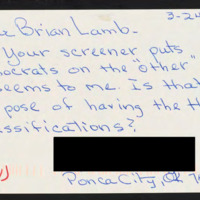 Brian Lamb.
3-24
Your screener puts
ocrats on the "other"
eems to me. Is that
pose of having the
ssifications?
Ponca City, OK